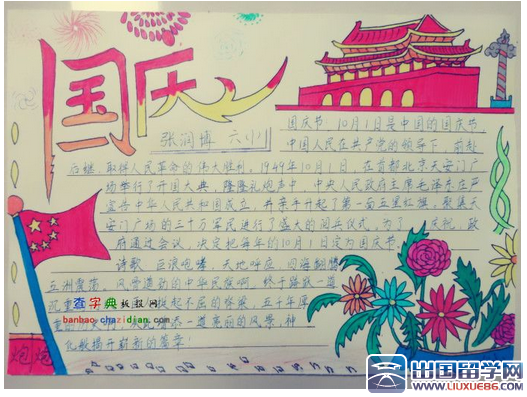 国庆
张润博 六(1)
国庆节:10月1日是中国的国庆节
中国人民在共产党的领导下,前赴
后继,取得人民革命的伟大胜利,1949年10月1日,在首都北京天安门广
场举行了开国大典,隆隆礼炮声中,中央人民政府主席毛泽东庄严
宣告中华人民共和国成立,并亲手升起了第一面五星红旗,聚集天
安门广场的三十万军民进行了盛大的阅兵仪式,为了 庆祝,政
府通过会议,决定把每年的10月1日定为国庆节
诗歌 巨浪咆哮,天地呼应,四海翻腾
五洲震荡,风雷
的中华民族啊,终于
起不屈的脊梁,五千年
添一道亮丽的风景,神
崭新的篇章!
查字典板报网
banbao.chazidian.com
出国留学网
WWW.LIUXUE86.COM